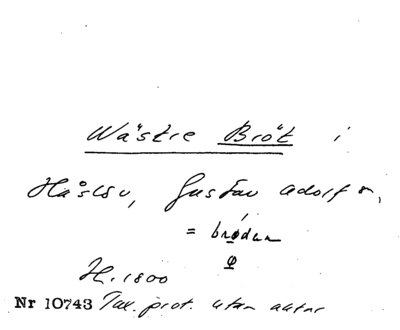 Wästre Bröt i
Håslöv, Gustav Adolf s,
= brødan
φ
H. 1800
Nr 10743 Tax. prot. utan